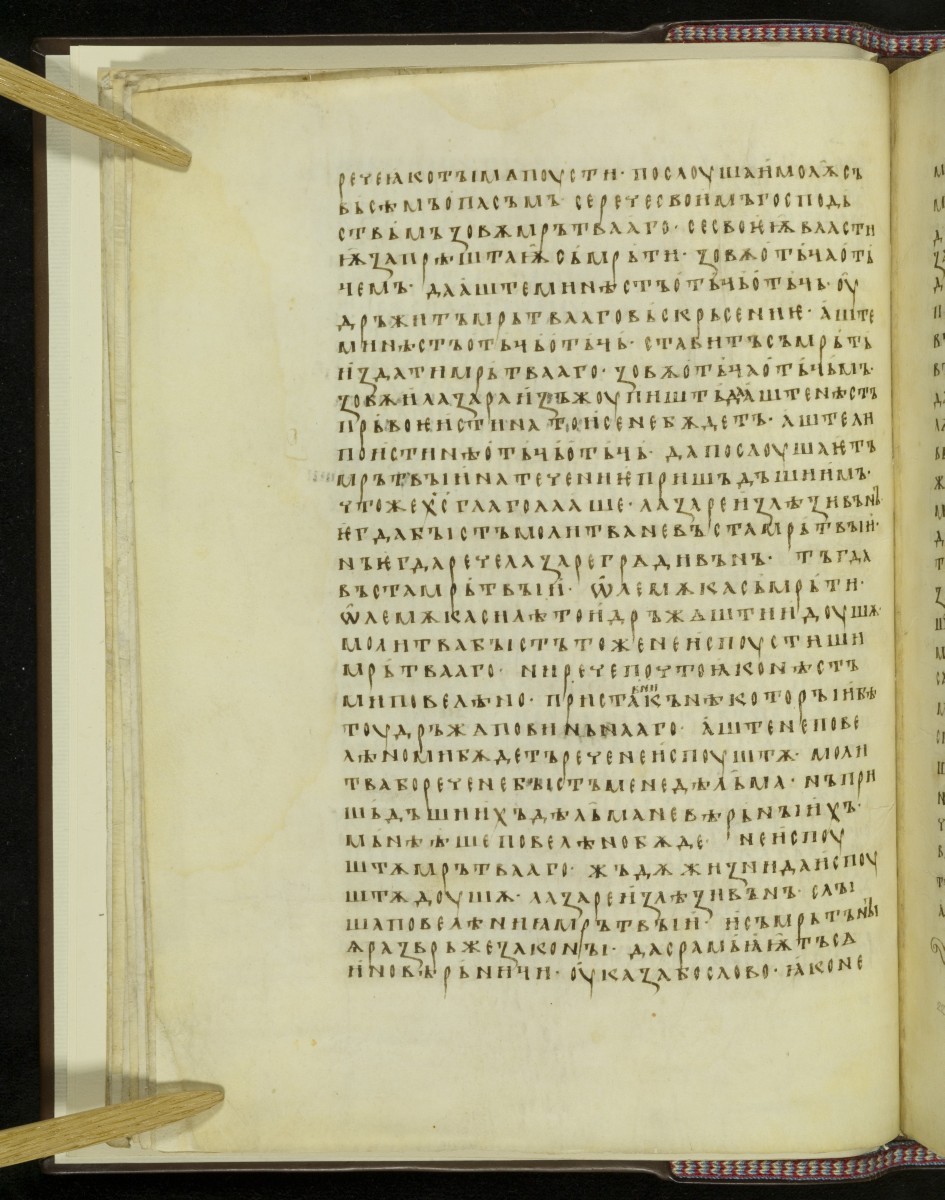 речеꙗкотъімапоусти· послоушаимолѫсѧ
вьсѣмъопасъмъ· серечесвоимъгосподь
ствьмъꙁовѫмрътвааго· сесвоѥѭвласти
ѭꙁапрѣштаѭсъмръти· ꙁовѫотьчаоть
чемъ· дааштеминѣстъотьчьотьчь· оу
дръжитъмрьтвааговьскрьсениѥ· аште
минѣстъотьчьотьчь· ставитъсъмрьть
иꙁдатимрьтвааго· ꙁовѫотьчаотьчьмъ·
ꙁовѫилаꙁараиꙁъжоупиштьдааштенѣстъ
прьвоѥистинатоисенебѫдетъ· аштели
поистинѣотьчьотьчь· дапослоушаѥтъ
мрьтвъіинатечениѥпришъдъшиимъ·
чтожех҃сглаголааше· лаꙁареиꙁлѣꙁивънъ
ѥгдабъістъмолитваневъстамрьтвъіи·
нъѥгдаречелаꙁареградивънъ· тъгда
въстамрьтвъіи· ѡлемѫкасъмрьти·
ѡлемѫкасилѣтоидръжѫштиидоушѫ·
молитвабъістътоженеиспоустиши
мрьтвааго· ниречепочтоꙗконѣстъ
миповелѣно· приставникънѣкоторъіибѣ
тоудръжаповиньнааго· аштенепове
лѣномибѫдетъреченеиспоуштѫ· моли
тваборечене бъістъменедѣльма· нъпри
шьдъшиихъдѣльманевѣрьнъіихъ·
мьнѣѣшеповелѣнобѫде· неиспоу
штѫмрътвааго· жъдѫжиꙁнидаиспоу
штѫдоушѫ· лаꙁареиꙁлѣꙁивънъ· слъі
шаповелѣниꙗмрътвъіи· исъмрьтънъі
ѧраꙁврьжеꙁаконъі· дасрамьꙗѭтъсѧ
иновѣрьничи· оукаꙁабослово· ꙗконе